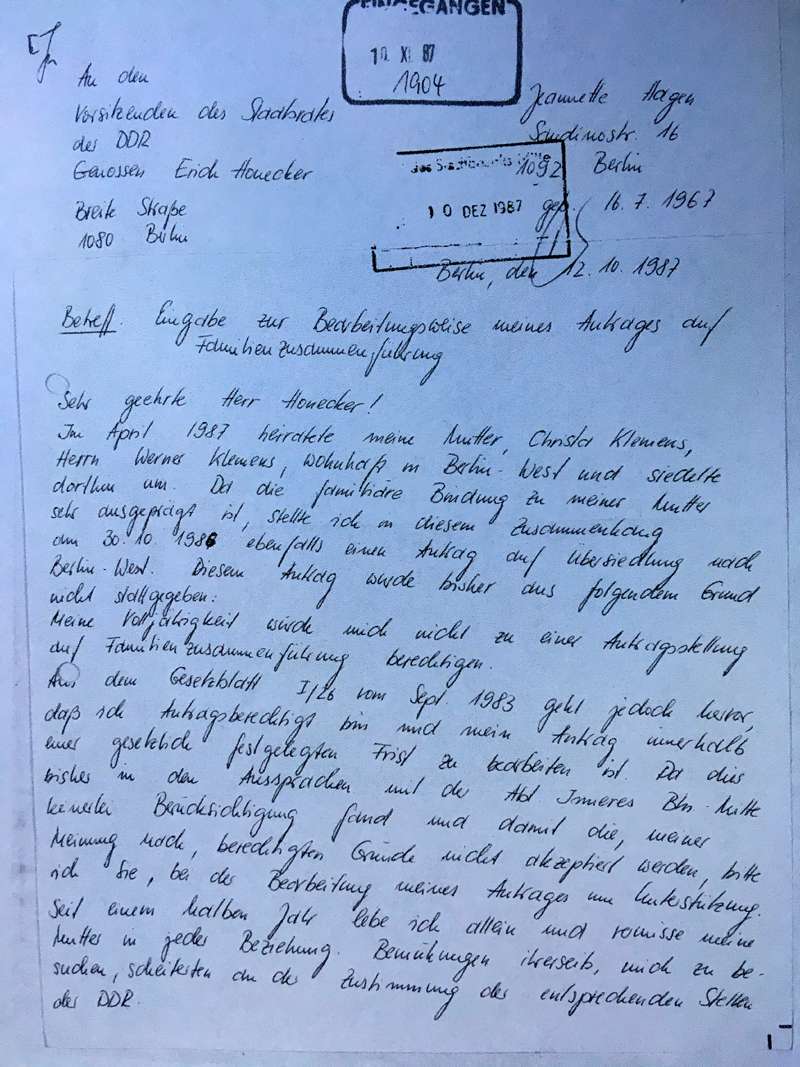 EINGEGANGEN
10. XI. 87
1904
An den
Vorsitzenden des Staatsrates
der DDR
Genossen Erich Honecker
Breite Straße
1080 Berlin
Jeannette Hagen
Sandinostr. 16
1092 Berlin
geb. 16. 7. 1967
des Stadtbezirks Mitte
10 DEZ 1987
Berlin, den 12. 10. 1987
Betreff: Eingabe zur Bearbeitungsweise meines Antrages auf
Familienzusammenführung
Sehr geehrte Herr Honecker!
Im April 1987 heiratete meine Mutter, Christa Klemens,
Herrn Werner Klemens, wohnhaft in Berlin-West und siedelte
dorthin um. Da die familiäre Bindung zu meiner Mutter
sehr ausgeprägt ist, stellte ich in diesem Zusammenhang
am 30. 10. 1986 ebenfalls einen Antrag auf Übersiedlung nach
Berlin-West. Diesem Antrag wurde bisher aus folgendem Grund
nicht stattgegeben:
Meine Volljährigkeit würde mich nicht zu einer Antragsstellung
auf Familienzusammenführung berechtigen.
Aus dem Gesetzblatt I/26 vom Sept. 1983 geht jedoch hervor,
daß ich Antragsberechtigt bin und mein Antrag innerhalb
einer gesetzlich festgelegten Frist zu bearbeiten ist. Da dies
bisher in den Aussprachen mit der Abt Inneres Bln-Mitte
keinerlei Berücksichtigung fand und damit die, meiner
Meinung nach, berechtigten Gründe nicht akzeptiert werden, bitte
ich Sie, bei der Bearbeitung meines Antrages um Unterstützung.
Seit einem halben Jahr lebe ich allein und vermisse meine
Mutter in jeder Beziehung. Bemühungen ihrerseits, mich zu be-
suchen, scheiterten an der Zustimmung der entsprechenden Stellen
der DDR.